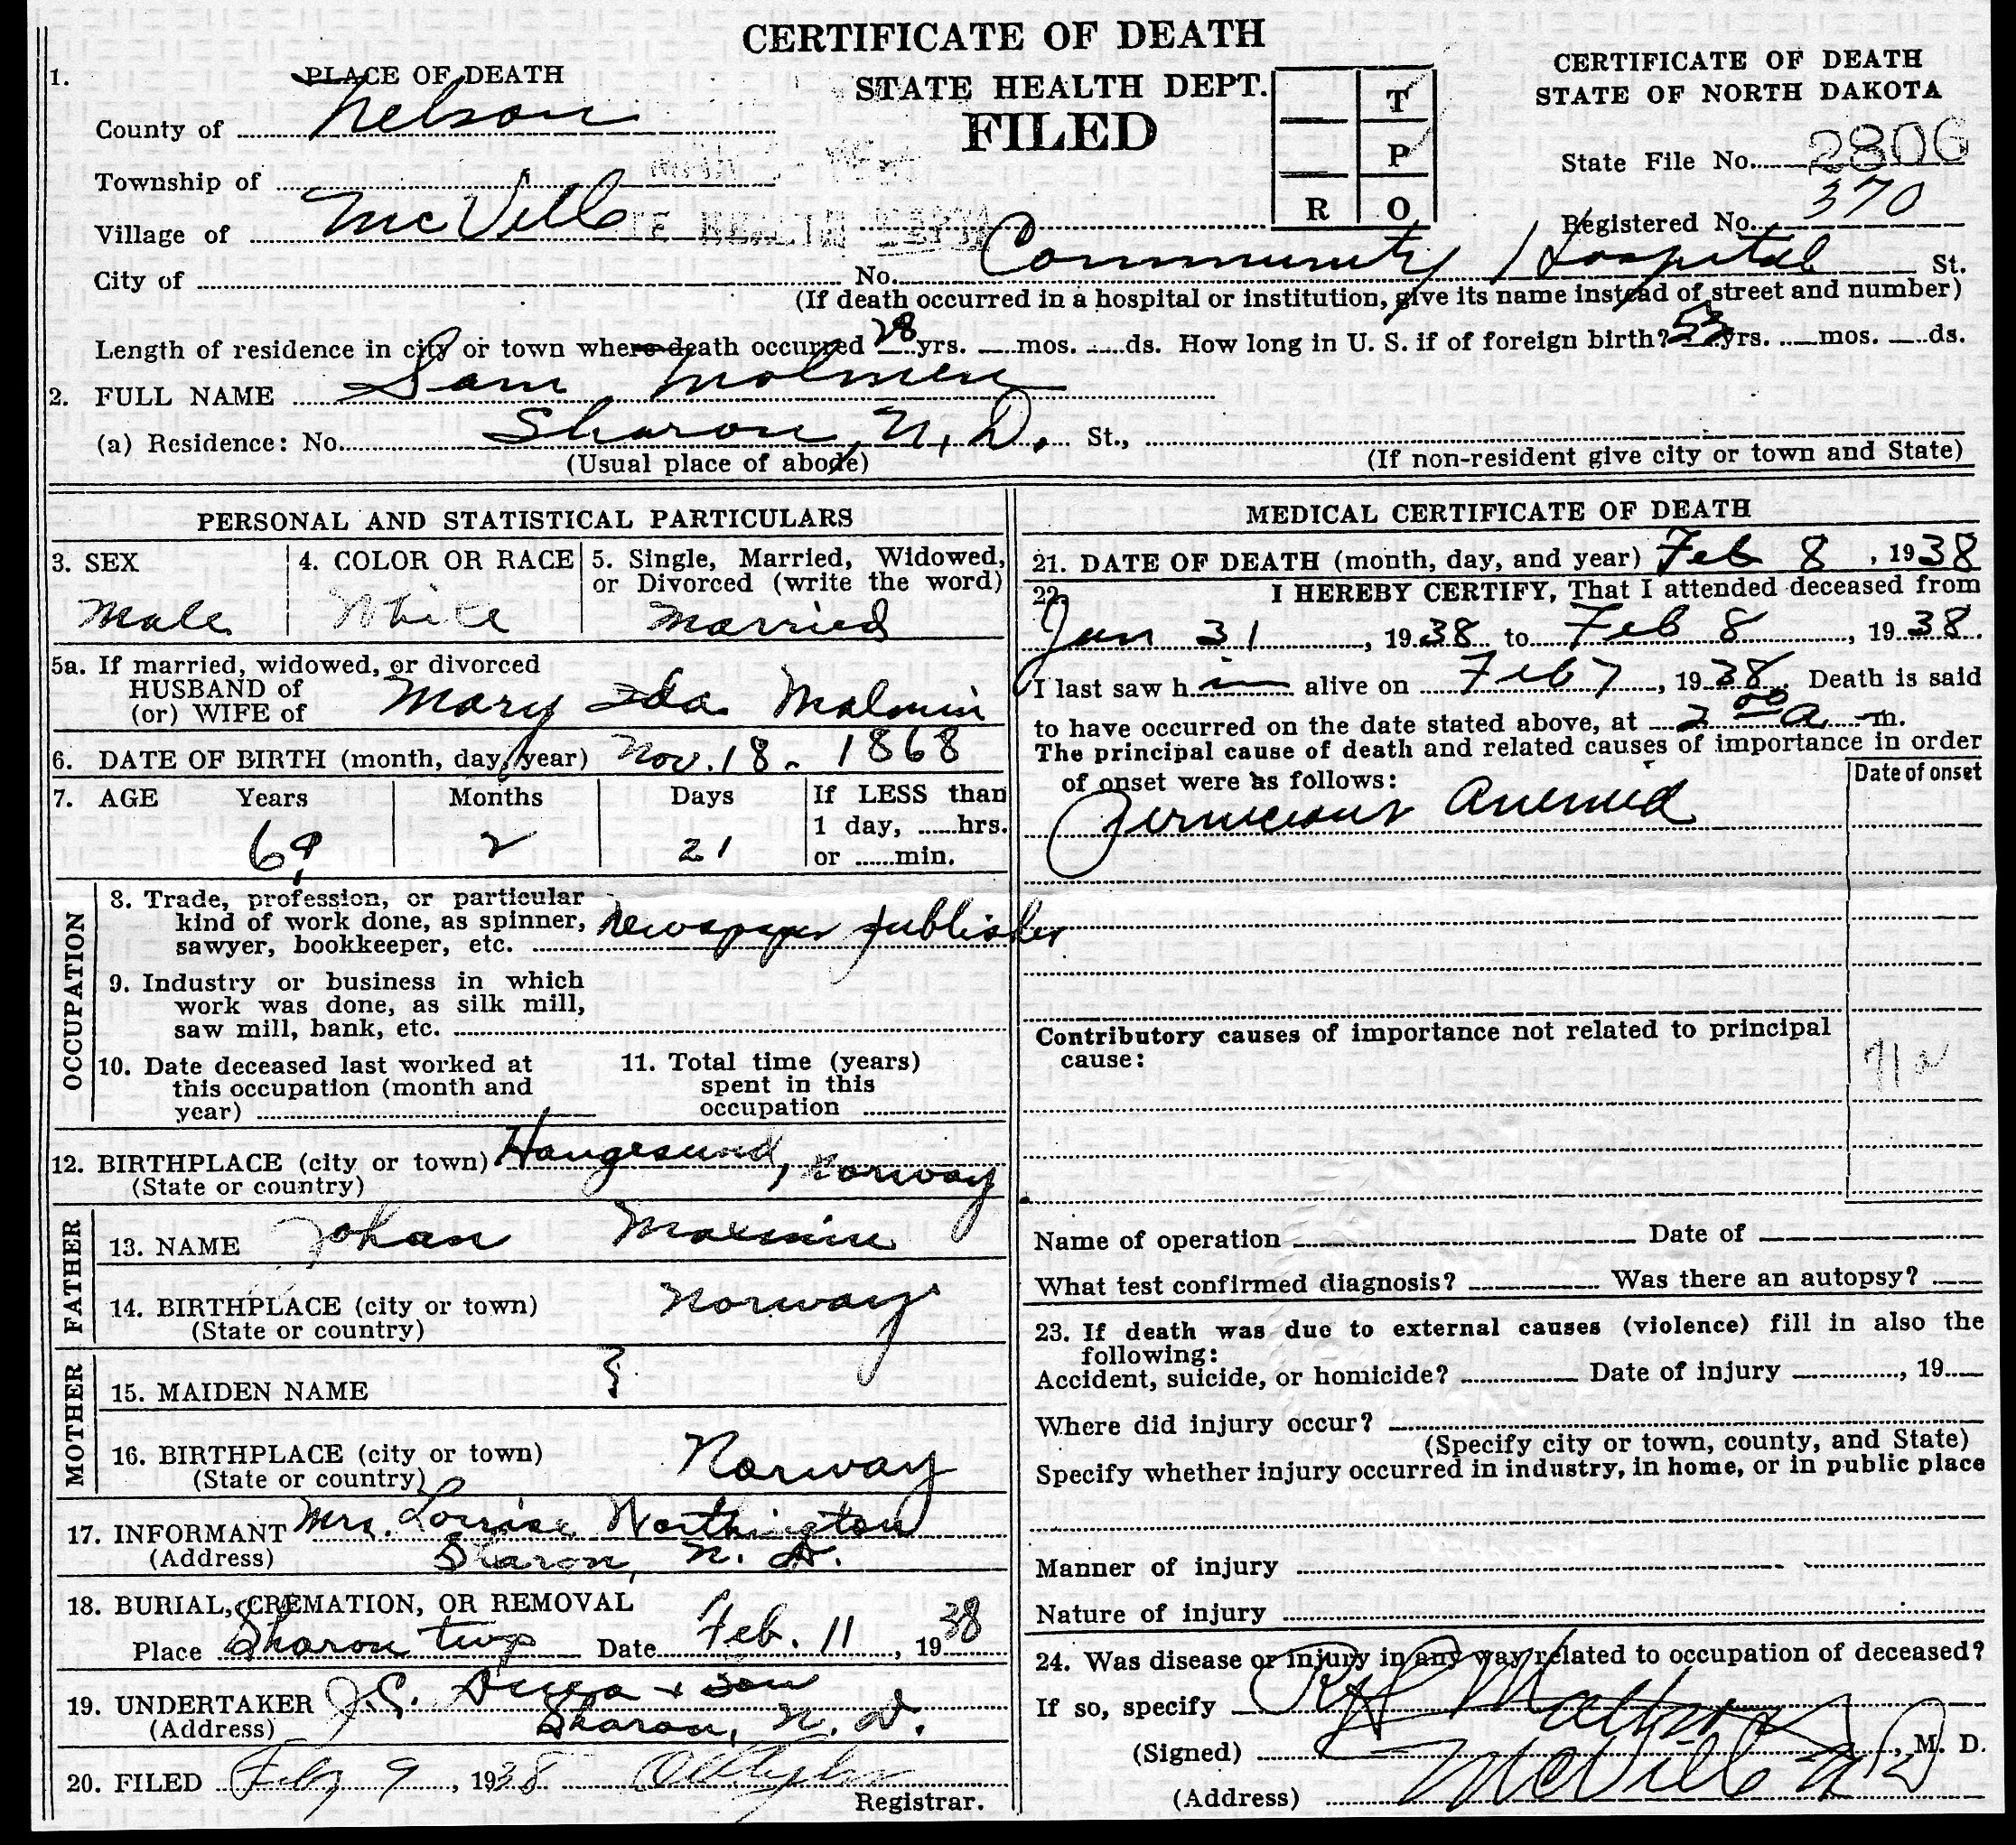 CERTIFICATE OF DEATH
STATE HEALTH DEPT.
FILED
T
P
R O
CERTIFICATE OF DEATH
STATE OF NORTH DAKOTA
State File No. 2806
Registered No. 370
1. PLACE OF DEATH
County of Nelson
Township of
Village of McVille
City of
No. Community Hospital St.
(If death occurred in a hospital or institution, give its name instead of street and number)
Length of residence in city or town where death occurred 28 yrs. mos. ds. How long in U. S. if of foreign birth? 53 yrs. mos. ds.
2. FULL NAME Sam Molmen
(a) Residence: No. Sharon, N. D. St.,
(Usual place of abode) (If non-resident give city or town and State)
PERSONAL AND STATISTICAL PARTICULARS
3. SEX
Male
4. COLOR OR RACE
White
5. Single, Married, Widowed,
or Divorced (write the word)
Married
5a. If married, widowed, or divorced
HUSBAND of
(or) WIFE of Mary Ida Malmin
6. DATE OF BIRTH (month, day, year) Nov. 18 - 1868
7. AGE Years Months Days If LESS than
1 day, hrs.
or min.
69 2 21
OCCUPATION
8. Trade, profession, or particular
kind of work done, as spinner,
sawyer, bookkeeper, etc. Newspaper publisher
9. Industry or business in which
work was done, as silk mill,
saw mill, bank, etc.
10. Date deceased last worked at
this occupation (month and
year)
11. Total time (years)
spent in this
occupation
12. BIRTHPLACE (city or town) Haugesund, Norway
(State or country)
FATHER
13. NAME Johan
14. BIRTHPLACE (city or town) Norway
(State or country)
MOTHER
15. MAIDEN NAME
16. BIRTHPLACE (city or town) Norway
(State or country)
17. INFORMANT Mrs. Louise Worthington
(Address) Sharon, N. D.
18. BURIAL, CREMATION, OR REMOVAL
Place Sharon twp Date Feb. 11, 1938
19. UNDERTAKER J.C. & Son
(Address) Sharon, N. D.
20. FILED Feb 9, 1938
Registrar.
MEDICAL CERTIFICATE OF DEATH
21. DATE OF DEATH (month, day, and year) Feb 8, 1938
22. I HEREBY CERTIFY, That I attended deceased from
Jan 31, 1938 to Feb 8, 1938.
I last saw h im alive on Feb 7, 1938. Death is said
to have occurred on the date stated above, at 2 00 a m.
The principal cause of death and related causes of importance in order
of onset were as follows:
Date of onset
Pernicious Anemia
Contributory causes of importance not related to principal
cause:
71a
Name of operation Date of
What test confirmed diagnosis? Was there an autopsy?
23. If death was due to external causes (violence) fill in also the
following:
Accident, suicide, or homicide? Date of injury , 19
Where did injury occur?
(Specify city or town, county, and State)
Specify whether injury occurred in industry, in home, or in public place
Manner of injury
Nature of injury
24. Was disease or injury in any way related to occupation of deceased?
If so, specify
(Signed) , M. D.
(Address) McVille ND